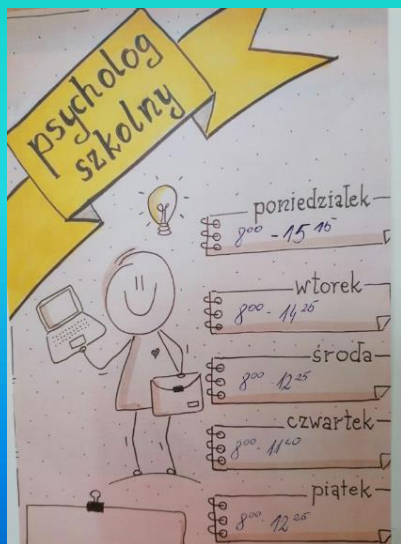 psycholog
szkolny
poniedziałek
8⁰⁰ - 15¹⁵
wtorek
8⁰⁰ - 14²⁵
środa
8⁰⁰ - 12²⁵
czwartek
8⁰⁰ - 11⁴⁰
piątek
8⁰⁰ - 12²⁵